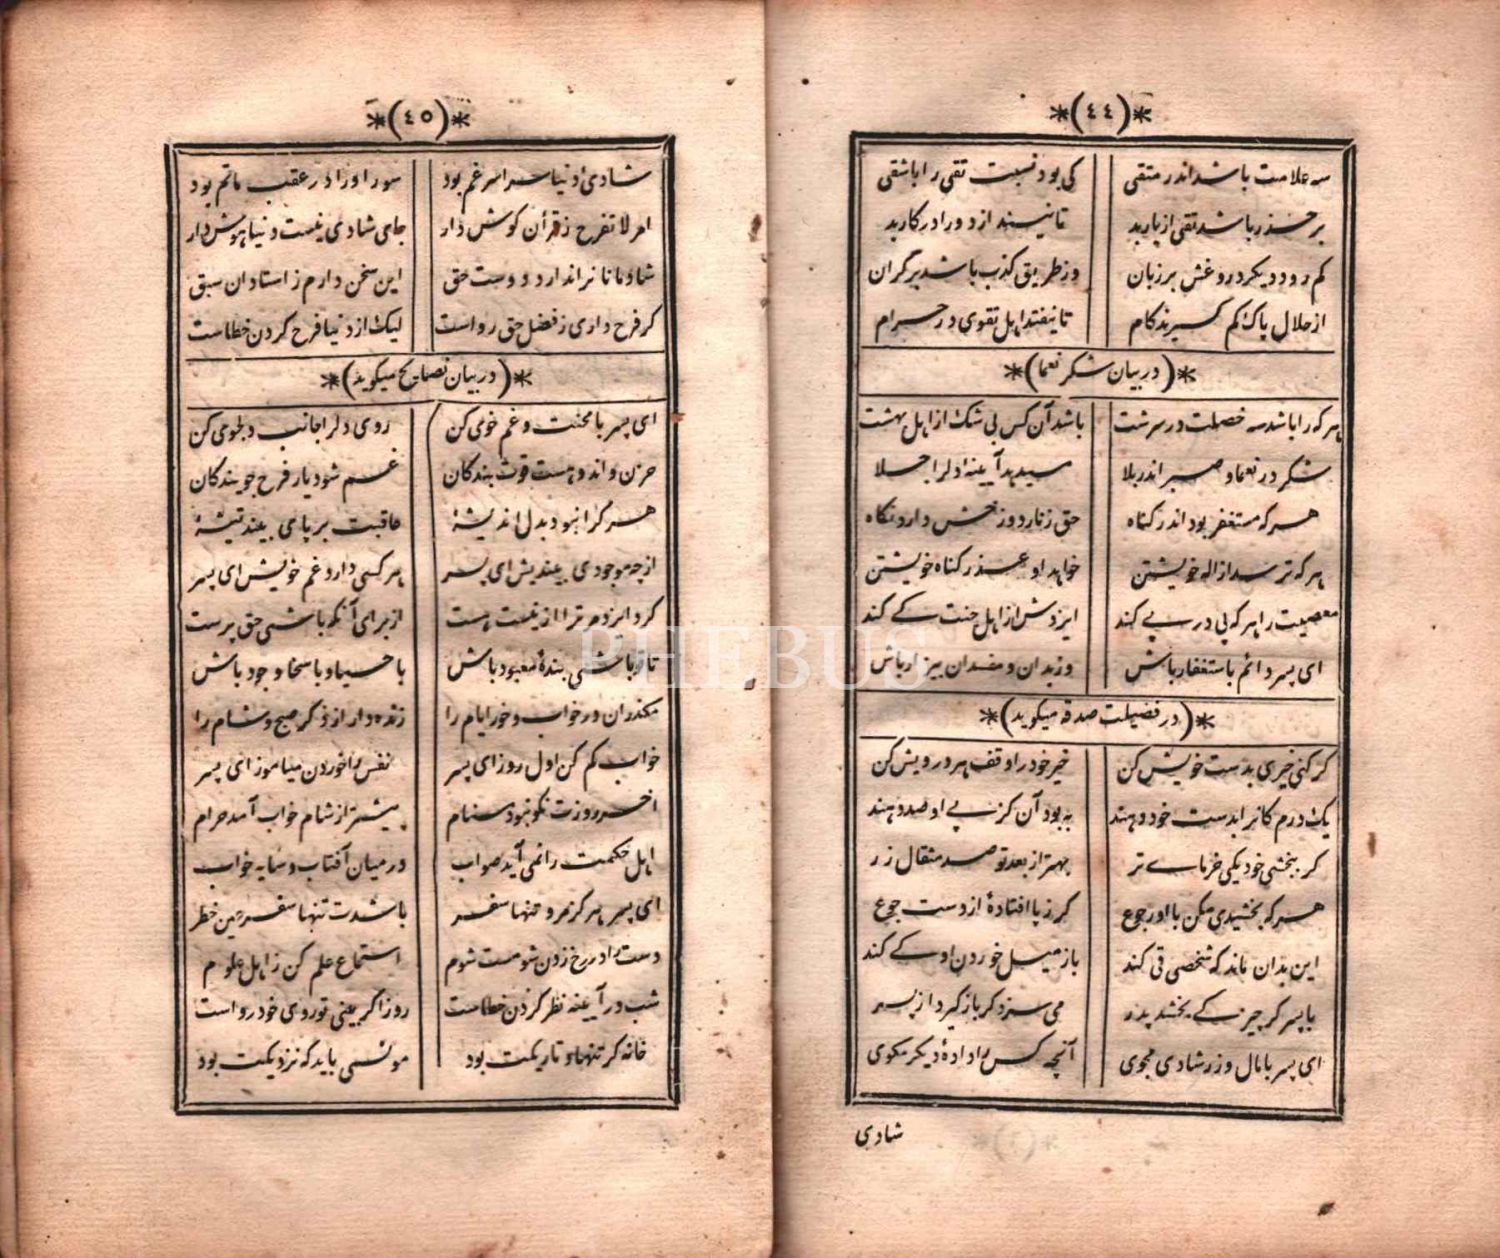 *(٤٤)*
سه علامت باشد اندر متقی	کی بود نسبت تقی را با شقی
بر حذر باشد تقی از یار بد	تا نیندازد ورا در کار بد
کم رود دیکر دروغش بر زبان	وز طریق کذب باشد بر کران
از حلال پاک کم کیرند کام	تا نیفتد اهل تقوی در حرام
*(در بیان شکر نعما)*
هر که را باشد سه خصلت در سرشت	باشد آن کس بی شک از اهل بهشت
شکر در نعما و صبر اندر بلا	میدهد آیینهٔ دلرا جلا
هر که مستغفر بود اندر کناه	حق زنار دوزخش دارد نکاه
هر که ترسد از اله خویشتن	خواهد او عذر کناه خویشتن
معصیت را هر که پی در پی کند	ایزدش از اهل جنت کے کند
ای پسر دائم باستغفار باش	وز بدان و مفسدان بیزار باش
*(در فضیلت صدقه میکوید)*
کر کنی خیری بدست خویش کن	خیر خود را وقف هر درویش کن
یک درم کانرا بدست خود دهند	به بود آن کز پے او صد دهند
کر ببخشی خود یکی خرماے تر	بهتر از بعد تو صد مثقال زر
هر که بخشیدی مکن با او رجوع	کر ز پا افتادهٔ از دست جوع
این بدان ماند که شخصی قی کند	باز میل خوردن او کے کند
با پسر کر چیزکے بخشد پدر	می سزد کر باز کیرد از پسر
ای پسر با مال و زر شادی مجوی	آنچه کس را دادهٔ دیکر مکوی
شادی
*(٤٥)*
شادیٔ دنیا سراسر غم بود	سور او را در عقب ماتم بود
امر لا تفرح ز قرآن کوش دار	جای شادی نیست دنیا هوش دار
شادمانانرا ندارد دوست حق	این سخن دارم ز استادان سبق
کر فرح داری ز فضل حق رواست	لیک از دنیا فرح کردن خطاست
*(در بیان نصایح میکوید)*
ای پسر با محنت و غم خوی کن	روی دلرا جانب دلجوی کن
حزن و اندوهست قوت بندکان	غم شود یار فرح جویندکان
هر کرا نبود بدل اندیشهٔ	عاقبت بر پای بیند تیشهٔ
از چه موجودی بیندیش ای پسر	هر کسی دارد غم خویش ای پسر
کرد ایزد مر ترا از نیست هست	از برای آنکه باشی حق پرست
تا تو باشی بندهٔ معبود باش	با حیا و با سخا و جود باش
مکذران در خواب و خور ایام را	زنده دار از ذکر صبح و شام را
خواب کم کن اول روز ای پسر	نفس را خوردن میاموز ای پسر
آخر روزت نکو نبود منام	پیشتر از شام خواب آمد حرام
اهل حکمت را نمی آید صواب	در میان آفتاب و سایه خواب
ای پسر هرکز مرو تنها سفر	باشدت تنها سفر عین خطر
دست را در رخ زدن شومست شوم	استماع علم کن ز اهل علوم
شب در آیینه نظر کردن خطاست	روز اکر بینی تو روی خود رواست
خانه کر تنها و تاریکت بود	مونسی باید که نزدیکت بود
PHEBUS